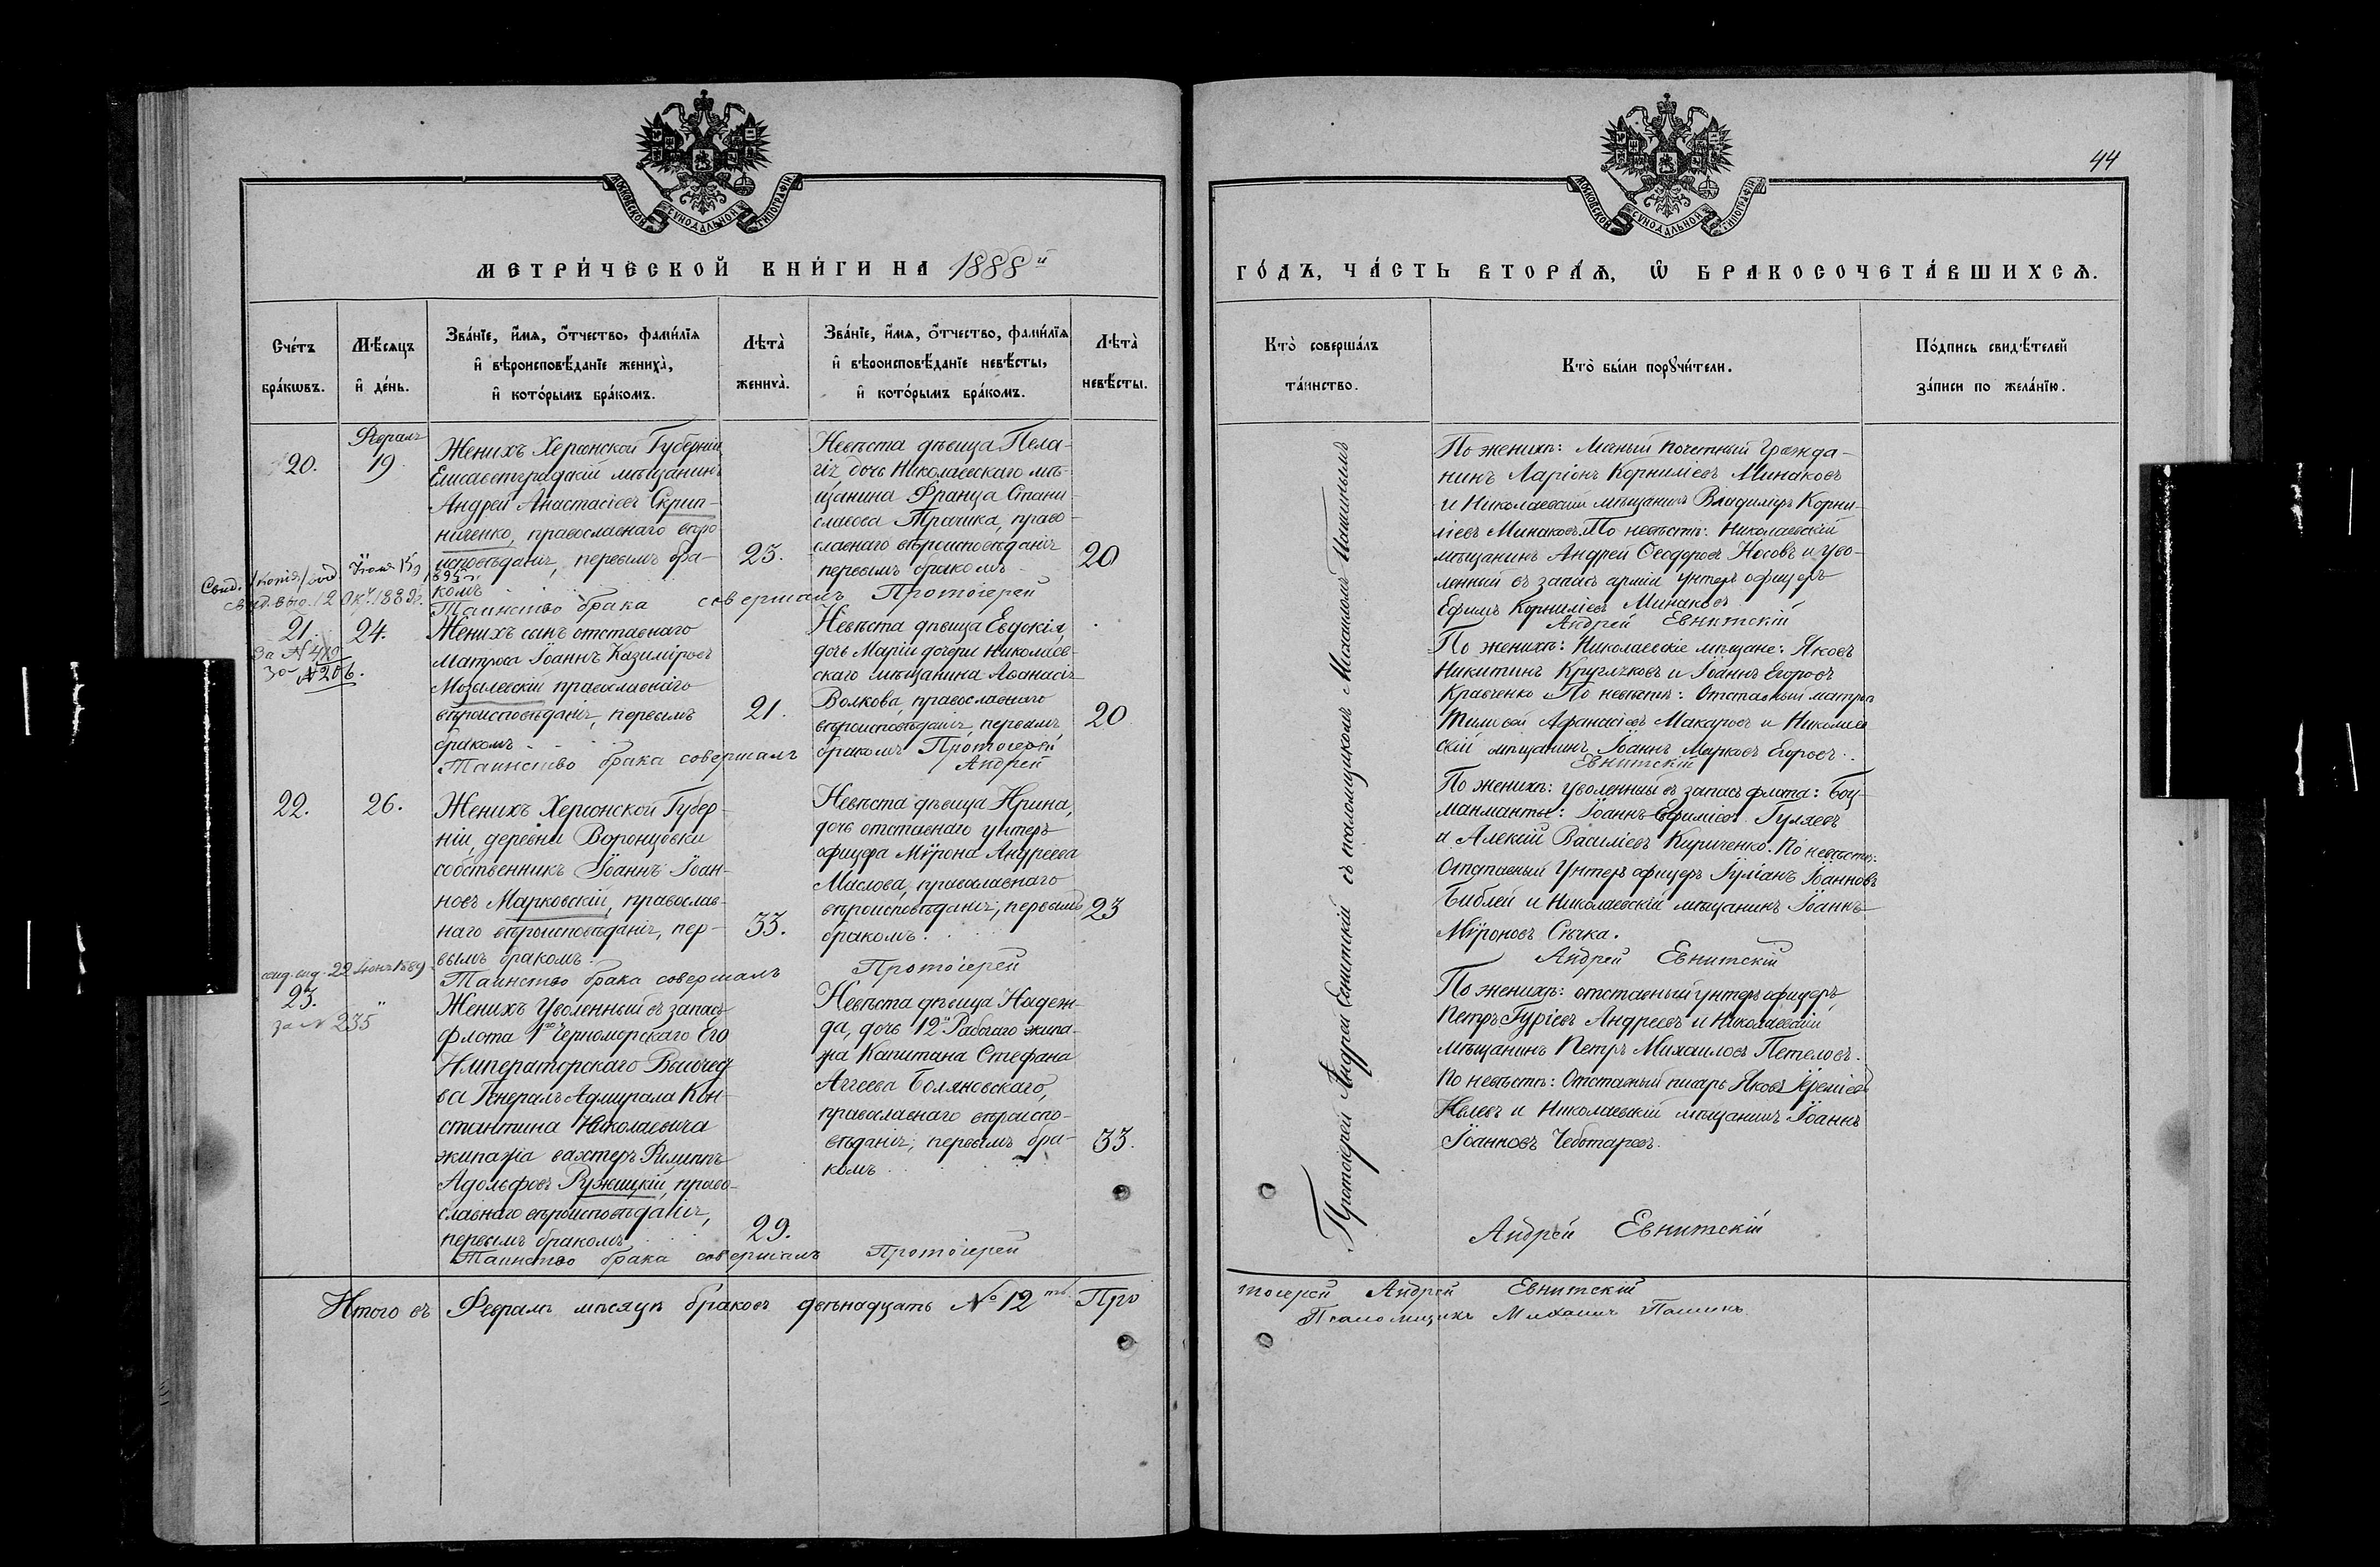 44
МОСКОВСКОЙ СѴНОДАЛЬНОЙ ТИПОГРАФІИ
МОСКОВСКОЙ СѴНОДАЛЬНОЙ ТИПОГРАФІИ
МЕТРИ́ЧЕСКОЙ КНИ́ГИ НА 1888й
Сче́тъ бра́кѡвъ.
Мѣ́сяцъ и҆ де́нь.
Зва́нїе, и҆́мѧ, ѻ҆́тчество, фами́лїѧ
и҆ вѣроисповѣ́данїе жениха̀,
и҆ кото́рымъ бра́комъ.
Лѣта̀ жениха̀.
Зва́нїе, и҆́мѧ, ѻ҆́тчество, фами́лїѧ
и҆ вѣроисповѣ́данїе невѣ́сты,
и҆ кото́рымъ бра́комъ.
Лѣта̀ невѣ́сты.
20.
Февраль
19
Женихъ Херсонской Губерніи
Елисаветградскій мѣщанинъ
Андрей Анастасіевъ Скрип-
ниченко, православнаго вѣро
исповѣданія, первымъ бра-
комъ
23.
Невѣста дѣвица Пела-
гія дочь Николаевскаго мѣ-
щанина Франца Стани-
славова Трачика, право-
славнаго вѣроисповѣданія
первымъ бракомъ
20
Таинство брака совершалъ Протоіерей
21.
24.
За № 206.
Женихъ сынъ отставнаго
матроса Іоаннъ Казиміровъ
Мозылевскій православнаго
вѣроисповѣданія, первымъ
бракомъ
21.
Невѣста дѣвица Евдокія,
дочь Маріи дочери Николаев-
скаго мѣщанина Аѳонасія
Волкова, православнаго
вѣроисповѣданія, первымъ
бракомъ
20
Таинство брака совершалъ Протоіерей
Андрей
22.
26.
Женихъ Херсонской Губер-
ніи, деревни Воронцовки
собственникъ Іоаннъ Іоан-
новъ Марковскій, православ-
наго вѣроисповѣданія, пер-
вымъ бракомъ.
33.
Невѣста дѣвица Ирина,
дочь отставнаго унтеръ
офицера Мѵрона Андреева
Маслова, православнаго
вѣроисповѣданія, первымъ
бракомъ.
23
Таинство брака совершалъ Протоіерей
23.
"
за № 235
Женихъ Уволенный въ запасъ
флота 1го Черноморскаго Его
Императорскаго Высочест
ва Генералъ Адмирала Кон-
стантина Николаевича
экипажа вахтеръ Филиппъ
Адольфовъ Ружицкій, право-
славнаго вѣроисповѣданія,
первымъ бракомъ
29.
Невѣста дѣвица Надеж-
да, дочь 12го Рабочаго экипа-
жа Капитана Стефана
Аггеева Боляновскаго,
православнаго вѣроиспо-
вѣданія, первымъ бра-
комъ
33.
Таинство брака совершалъ Протоіерей
Итого въ Февралѣ мѣсяцѣ браковъ двѣнадцать № 12ть. Про
ГО́ДЪ, ЧА́СТЬ ВТОРА́Ѧ, Ѡ҆ БРАКОСОЧЕТА́ВШИХСѦ.
Кто̀ соверша́лъ та́инство.
Кто̀ бы́ли порꙋчи́тели.
По́дпись свидѣ́телей за́писи по жела́нїю.
Протоіерей Андрей Евнитскій съ псаломщикомъ Михаиломъ Пашинымъ
По женихѣ: Личный почетный Гражда-
нинъ Ларіонъ Корниліевъ Минаковъ
и Николаевскій мѣщанинъ Владиміръ Корни-
ліевъ Минаковъ. По невѣстѣ: Николаевскій
мѣщанинъ Андрей Ѳеодоровъ Носовъ и уво-
ленный въ запасъ арміи унтеръ офицеръ
Ефимъ Корниліевъ Минаковъ
Андрей Евнитскій
По женихѣ: Николаевскіе мѣщане: Яковъ
Никитинъ Кругляковъ и Іоаннъ Егоровъ
Кравченко По невѣстѣ: Отставный матросъ
Тимоѳей Афанасіевъ Макаровъ и Николаев
скій мѣщанинъ Іоаннъ Марковъ Егоровъ.
Евнитскій
По женихѣ: уволенный въ запасъ флота: Боц-
манматы: Іоаннъ Ефиміевъ Гуляевъ
и Алексій Василіевъ Кириченко. По невѣстѣ:
Отставный Унтеръ офицеръ Іуліанъ Іоанновъ
Библей и Николаевскій мѣщанинъ Іоаннъ
Мѵроновъ Сѣчка.
Андрей Евнитскій
По женихѣ: отставный унтеръ офицеръ
Петръ Гуріевъ Андреевъ и Николаевскій
мѣщанинъ Петръ Михаиловъ Петеловъ.
По невѣстѣ: Отставный писарь Яковъ Іереміевъ
Ивлевъ и Николаевскій мѣщанинъ Іоаннъ
Іоанновъ Чеботаревъ.
Андрей Евнитскій
тоіерей Андрей Евнитскій
Псаломщикъ Михаилъ Пашинъ